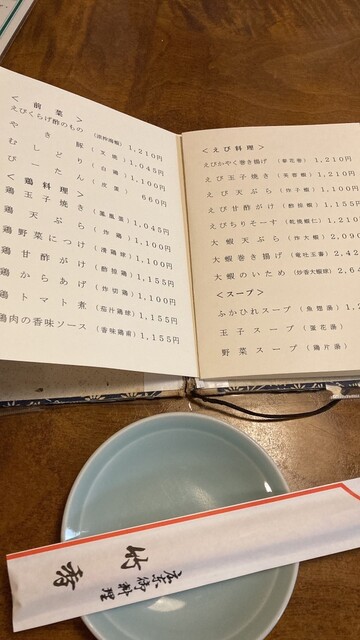 ＜前菜＞
えびくらげ酢のもの (涼拌海蝦) 1,210円
やき豚 (叉焼) 1,045円
むしどり (白鶏) 1,100円
ぴーたん (皮蛋) 660円
＜鶏料理＞
鶏玉子焼き (鳳凰蛋) 1,045円
鶏天ぷら (炸鶏) 1,100円
鶏野菜につけ (清鶏球) 1,100円
鶏甘酢がけ (酢搲鶏) 1,155円
鶏からあげ (炸切鶏) 1,100円
鶏トマト煮 (茄汁鶏球) 1,155円
鶏肉の香味ソース (香味鶏甫) 1,155円
＜えび料理＞
えびかやく巻き揚げ (春花巻) 1,210円
えび玉子焼き (芙蓉蝦) 1,210
えび天ぷら (炸子蝦) 1,100
えび甘酢がけ (酢搲蝦) 1,155
えびちりそーす (乾焼蝦仁) 1,210
大蝦天ぷら (炸大蝦) 2,090
大蝦巻き揚げ (竜吐玉書) 2,42
大蝦のいため (炒香大蝦球) 2,6
＜スープ＞
ふかひれスープ (魚翅湯) 1
玉子スープ (蛋花湯)
野菜スープ (鶏片湯)
広東御料理
竹香